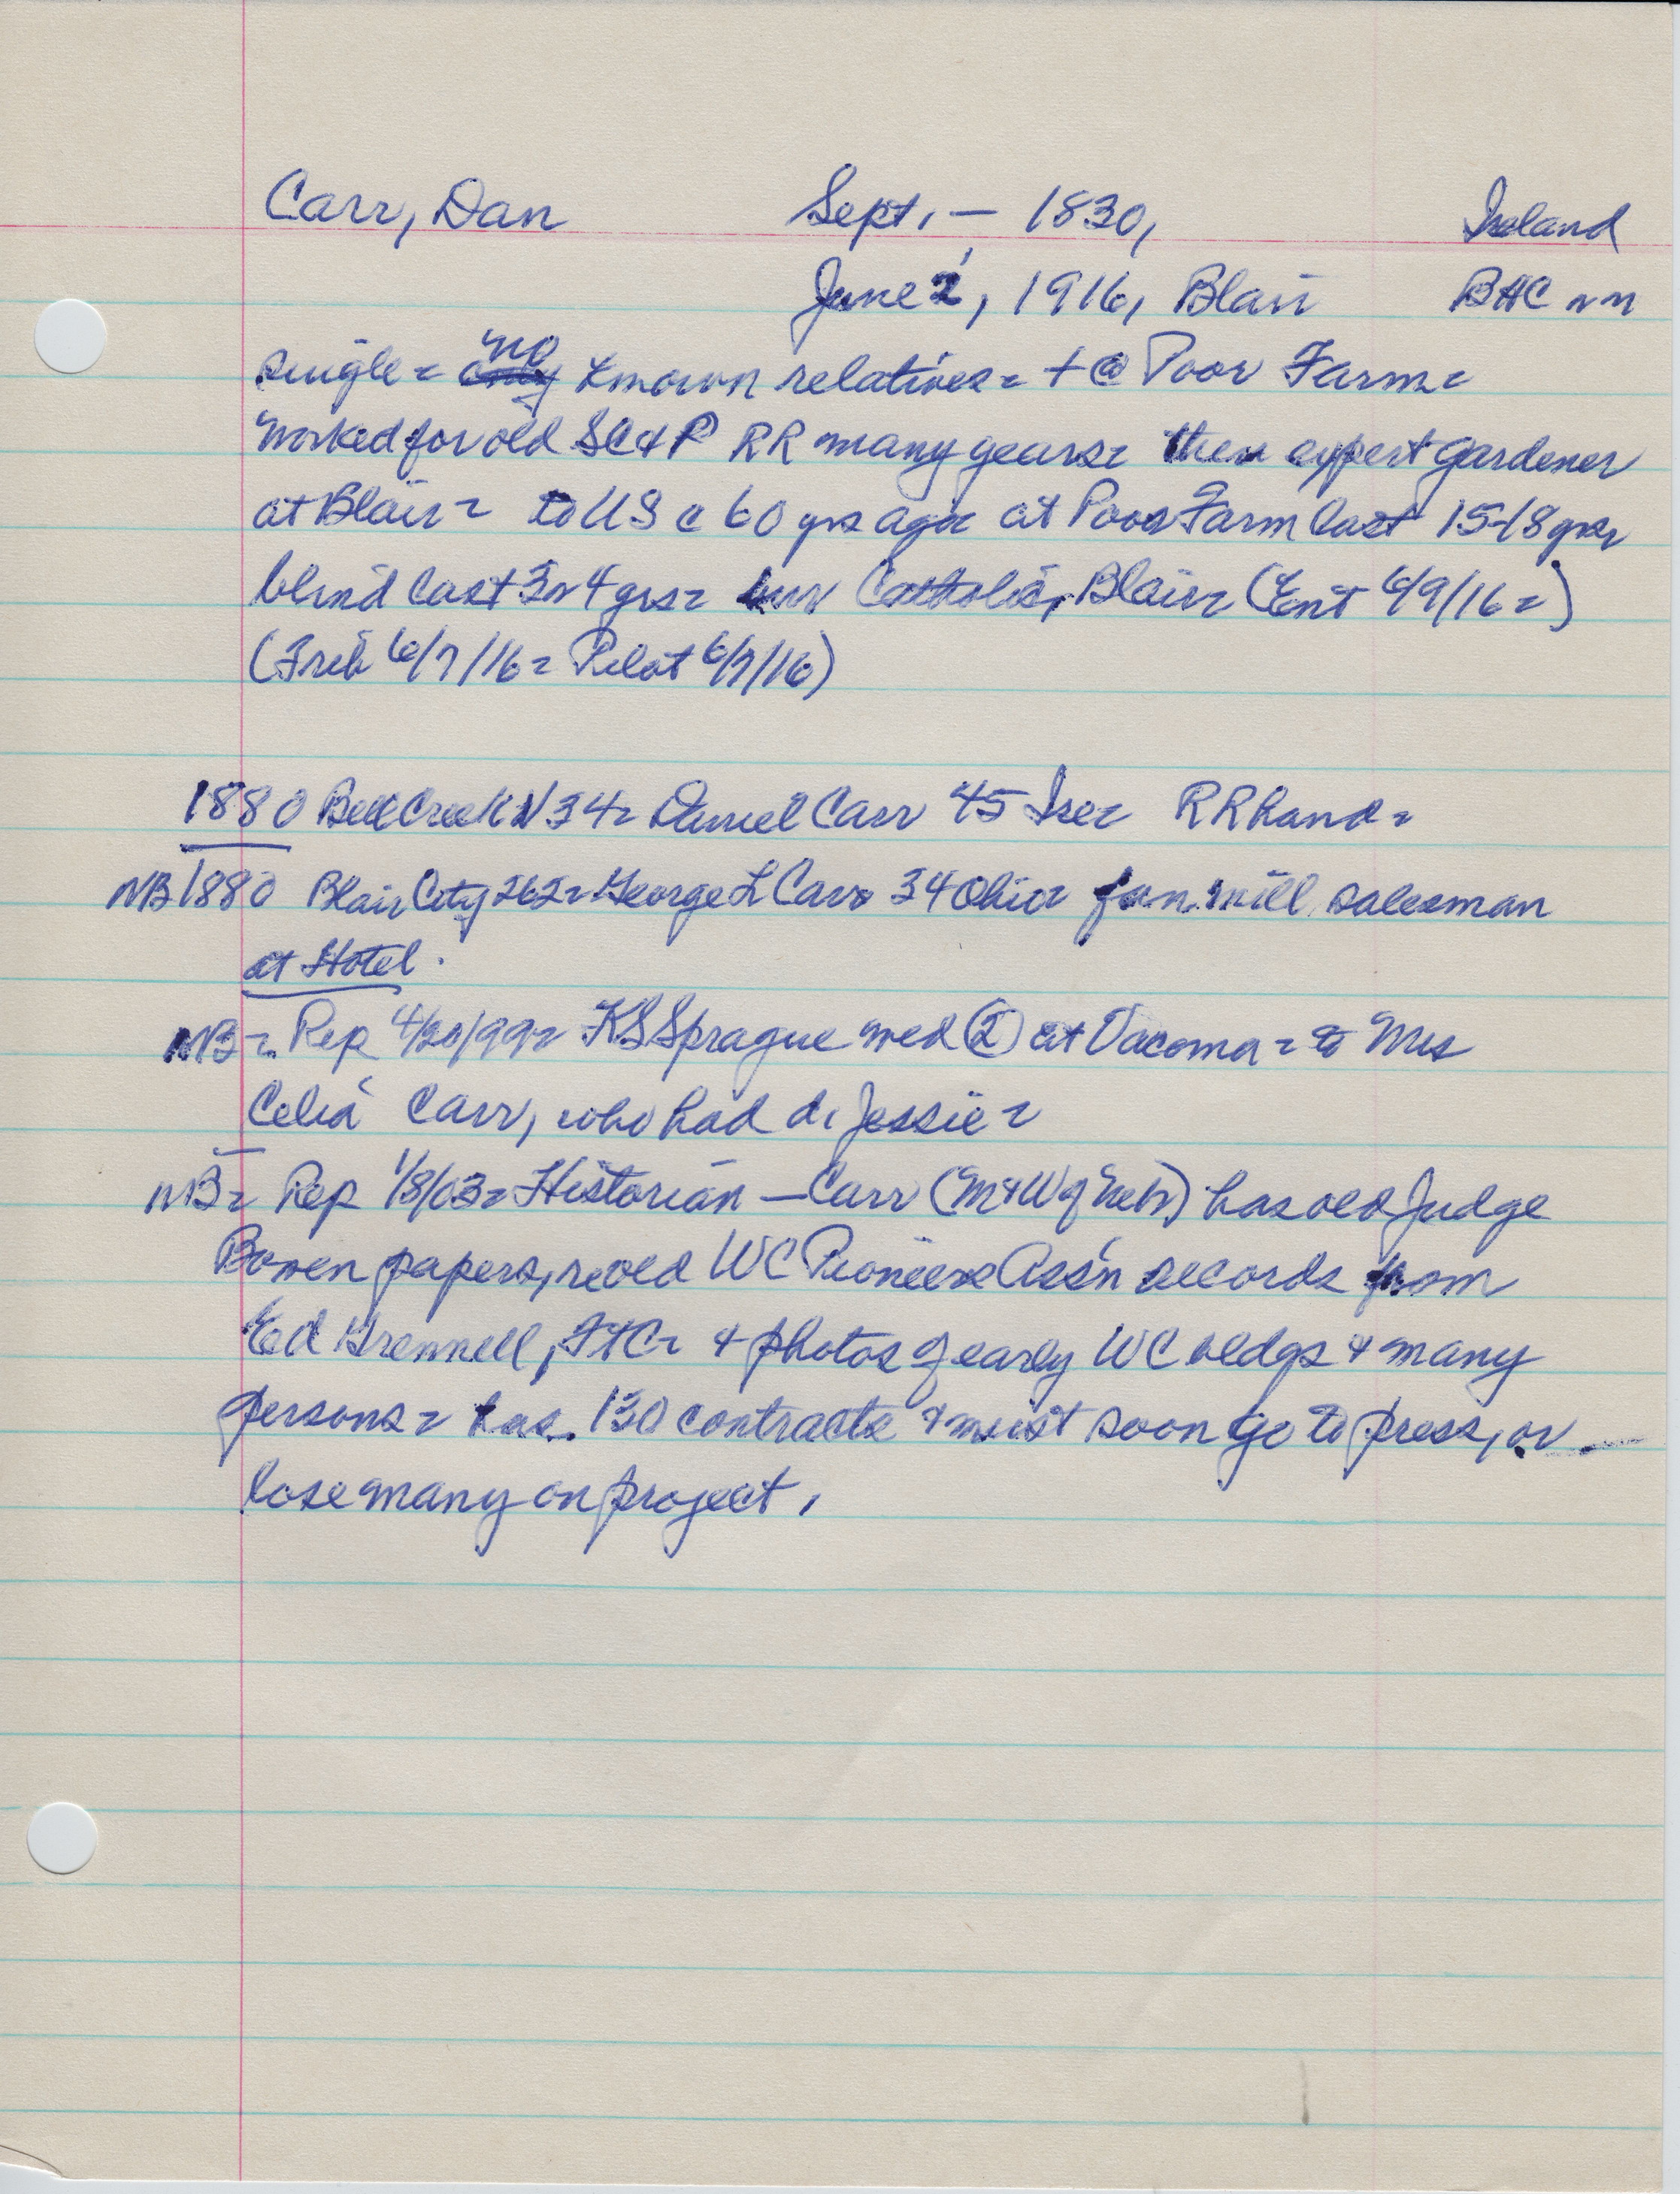 Carr, Dan Sept. — 1830, Ireland
June 2, 1916, Blair BHC nm
single = no known relatives = + @ Poor Farm =
Worked for old SC&P RR many years = then expert gardener
at Blair = to US c 60 yrs ago = at Poor Farm last 15-18 yrs =
blind last 3 or 4 yrs = bur Catholic, Blair = (Ent 6/9/16 =)
(Trib 6/7/16 = Pilot 6/7/16)
1880 Bell Creek N 34 = Daniel Carr 45 Ire = RR hand =
NB 1880 Blair City 262 = George L Carr 34 Ohio = fan mill salesman
at Hotel.
NB = Rep 4/20/99 = KS Sprague med (2) at Vacoma = to Mrs
Celia Carr, who had d. Jessie =
NB = Rep 1/8/03 = Historian — Carr (M & W of Nebr) has old Judge
Bowen papers, recd WC Pioneers Ass'n records from
Ed Grennell, FtC = + photos of early WC bldgs + many
persons = has 130 contracts + must soon go to press, or
lose many on project.